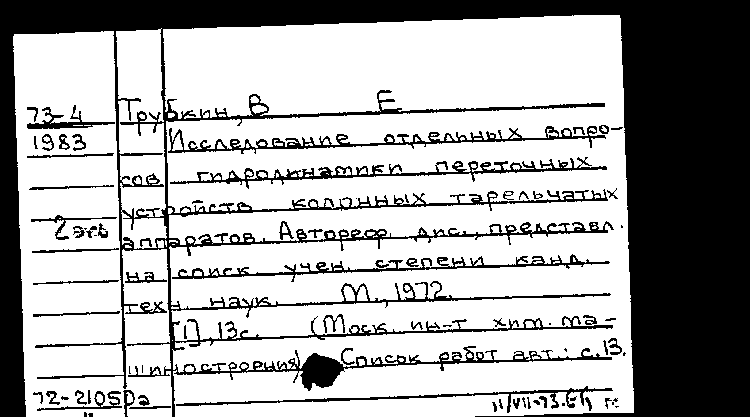 73-4 Трубкин, В Е
1983 Исследование отдельных вопро-
сов гидродинамики переточных
устройств колонных тарельчатых
2 экз аппаратов. Автореф. дис., представл.
на соиск. учен. степени канд.
техн. наук. М., 1972.
[1], 13с. (Моск. ин-т хим. ма-
шиностроения) Список работ авт.: с.13.
72-21050а